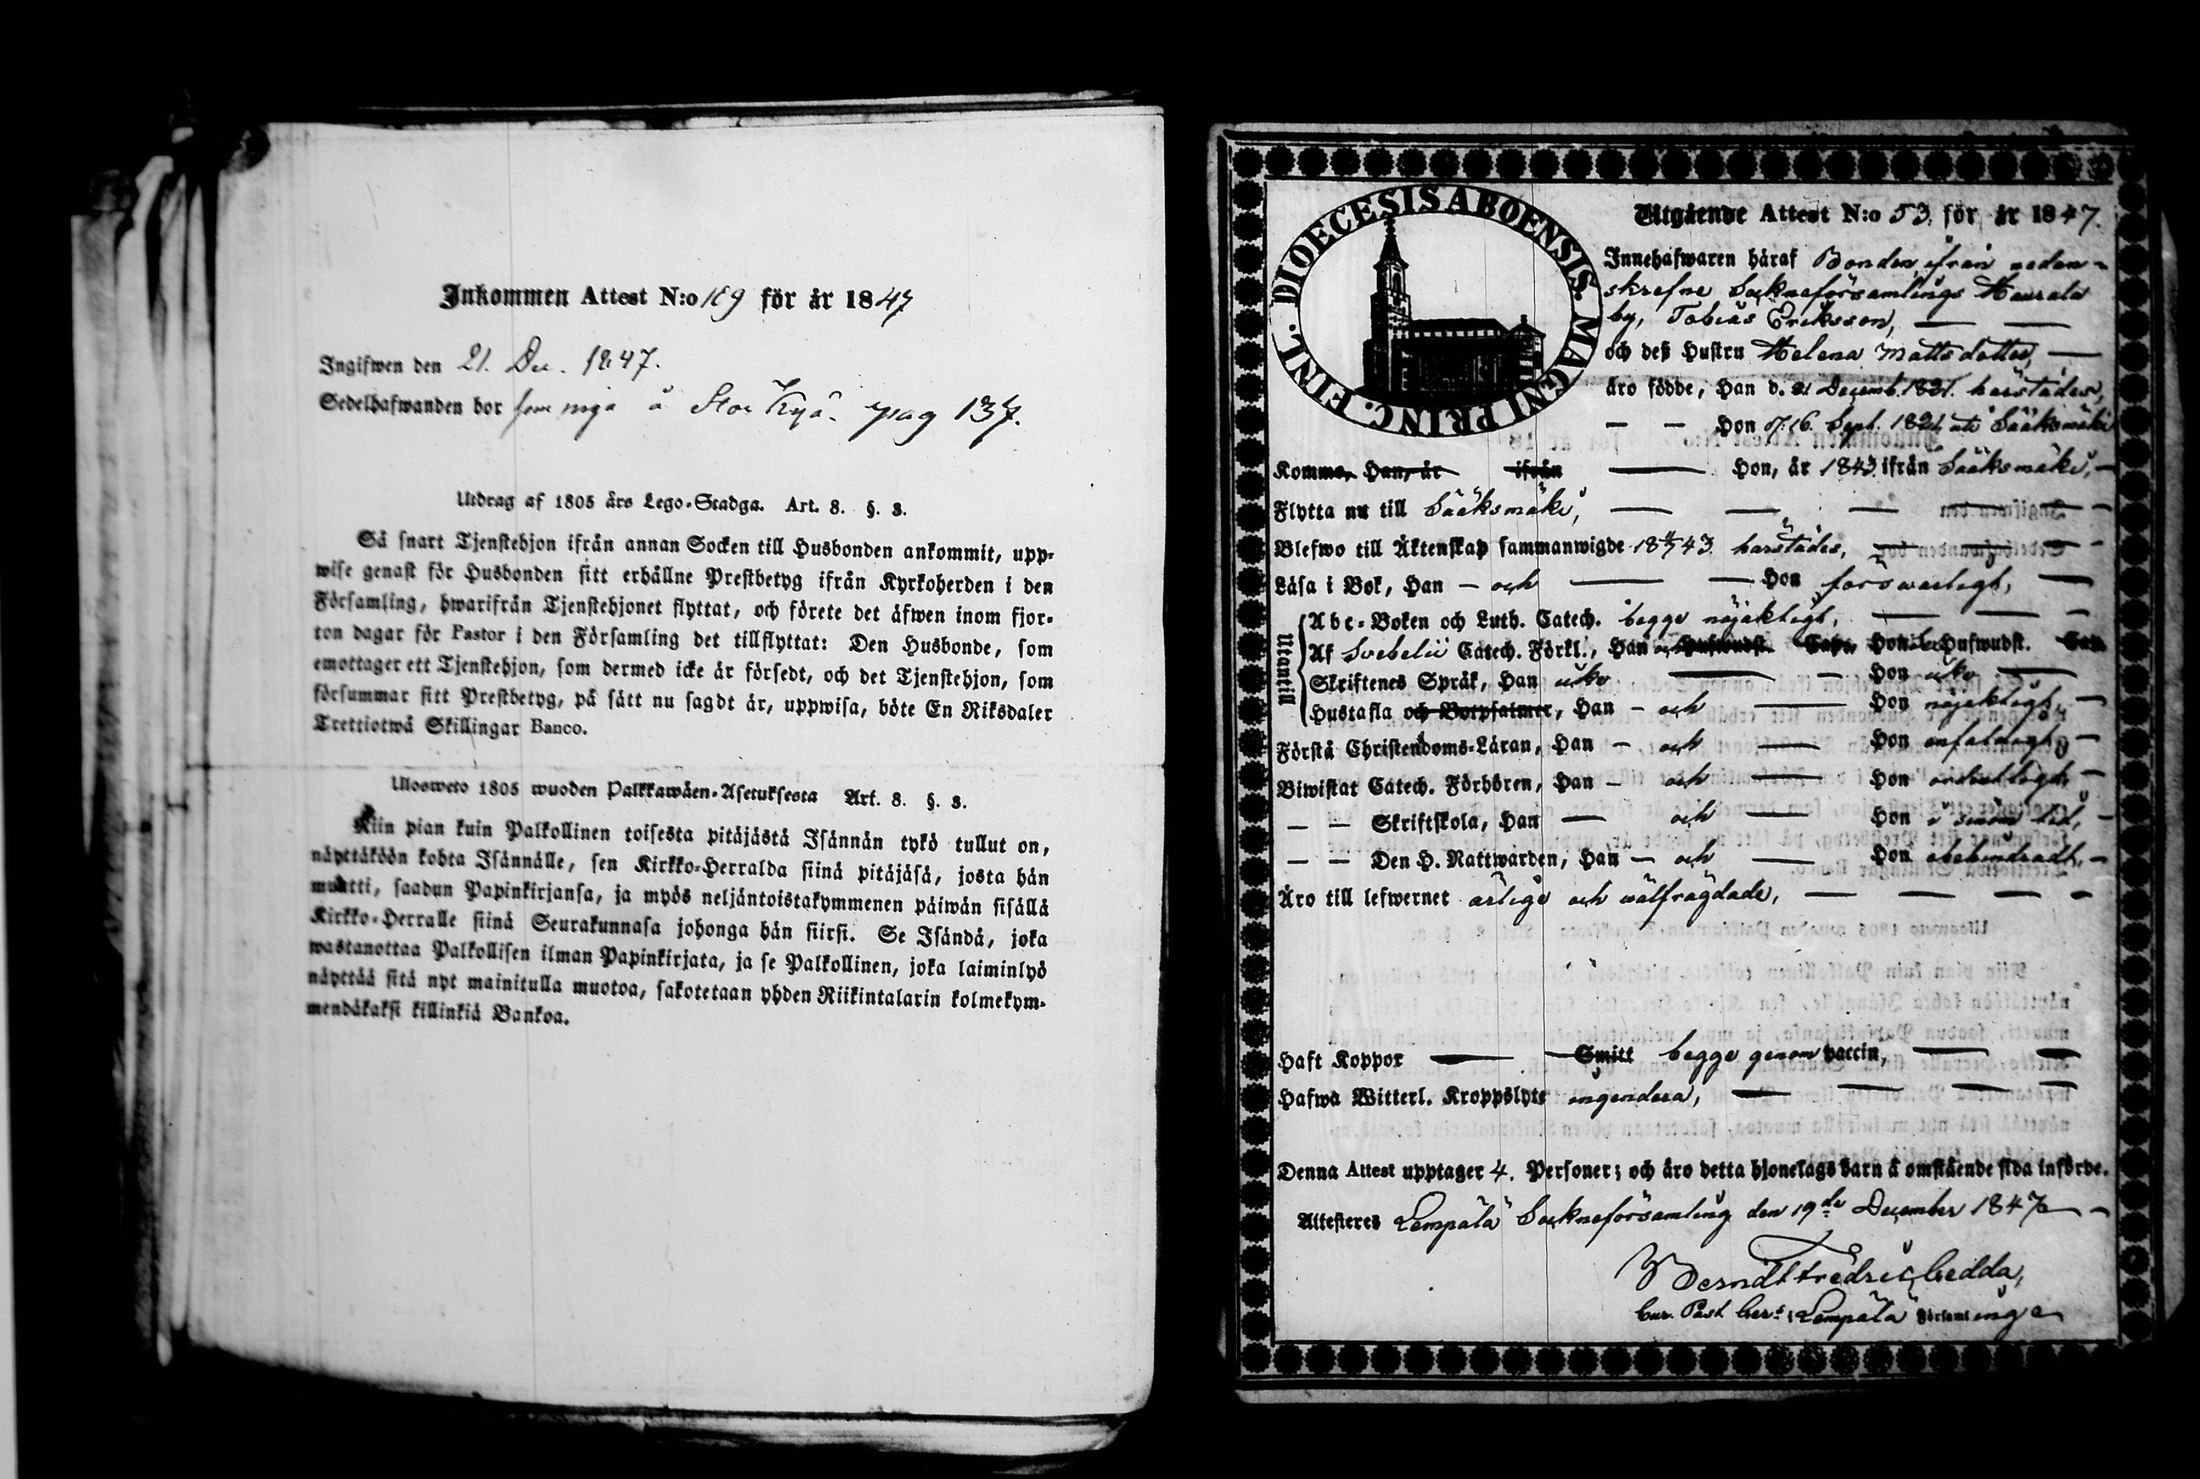 Inkommen Attest N:o 169 för år 1847
Ingifwen den 21. Dec. 1847.
Sedelhafwanden bor å Stor Kyä. pag 137.
Utdrag af 1805 års Lego-Stadga. Art. 8. §. 3.
Så snart Tjenstehjon ifrån annan Socken till Husbonden ankommit, upp-
wise genast för Husbonden sitt erhållne Prestbetyg ifrån Kyrkoherden i den
Församling, hwarifrån Tjenstehjonet flyttat, och förete det äfwen inom fjor-
ton dagar för Pastor i den Församling det tillflyttat: Den Husbonde, som
emottager ett Tjenstehjon, som dermed icke är försedt, och det Tjenstehjon, som
försummar sitt Prestbetyg, på sätt nu sagdt är, uppwisa, böte En Riksdaler
Trettiotwå Skillingar Banco.
Ulosweto 1805 wuoden Palkkawäen-Asetuksesta Art. 8. §. 3.
Niin pian kuin Palkollinen toisesta pitäjästä Isännän tykö tullut on,
näyttäköön kohta Isännälle, sen Kirkko-Herralda siinä pitäjäsä, josta hän
muutti, saadun Papinkirjansa, ja myös neljäntoistakymmenen päiwän sisällä
Kirkko-Herralle siinä Seurakunnasa johonga hän siirsi. Se Isändä, joka
wastanottaa Palkollisen ilman Papinkirjata, ja se Palkollinen, joka laiminlyö
näyttää sitä nyt mainitulla muotoa, sakotetaan yhden Riikintalarin kolmekym-
mendäkaksi killinkiä Bankoa.
DIOECESIS ABOENSIS. MAGNI PRINC. FINL.
Utgående Attest N:o 53 för år 1847.
Innehafwaren häraf Bonden ifrån nedan-
skrefne Sockneförsamlings Maurala
by, Tobias Eriksson,
och deß Hustru Helena Mattsdotter,
äro födde, Han d. 21 Decemb. 1821. härstädes,
Hon d. 16. Sept. 1821 uti Sääksmäki
Komme, Han, år ifrån Hon, år 1843 ifrån Sääksmäki,
Flytta nu till Sääksmäki,
Blefwo till Äktenskap sammanwigde 1843 härstädes,
Läsa i Bok, Han – och Hon försvarligt,
Utantill
Abc-Boken och Luth. Catech. begge nöjaktigt,
Af Svebelii Catech. Förkl., Han och Hufwudst. Cap. Hon Hufwudst. Cap.
Skriftenes Språk, Han icke Hon icke
Hustafla och Botpsalmer, Han – och Hon nöjaktigt,
Förstå Christendoms-Läran, Han – och Hon enfaldigt,
Biwistat Catech. Förhören, Han – och Hon ordentligt,
– – Skriftskola, Han – och Hon i sinom tid,
– – Den H. Nattwarden, Han – och Hon obehindradt,
Äro till lefwernet ärlige och välfrägdade,
Haft Koppor Smitt begge genom vaccin,
Hafwa Witterl. Kroppslyte ingendera,
Denna Attest upptager 4. Personer; och äro detta hjonelags barn å omstående sida införde.
Attesteres Lempälä Sockneförsamling den 19de December 1847
Berndt Fredric Gedda,
Cur. Past. Lempälä Församlinge